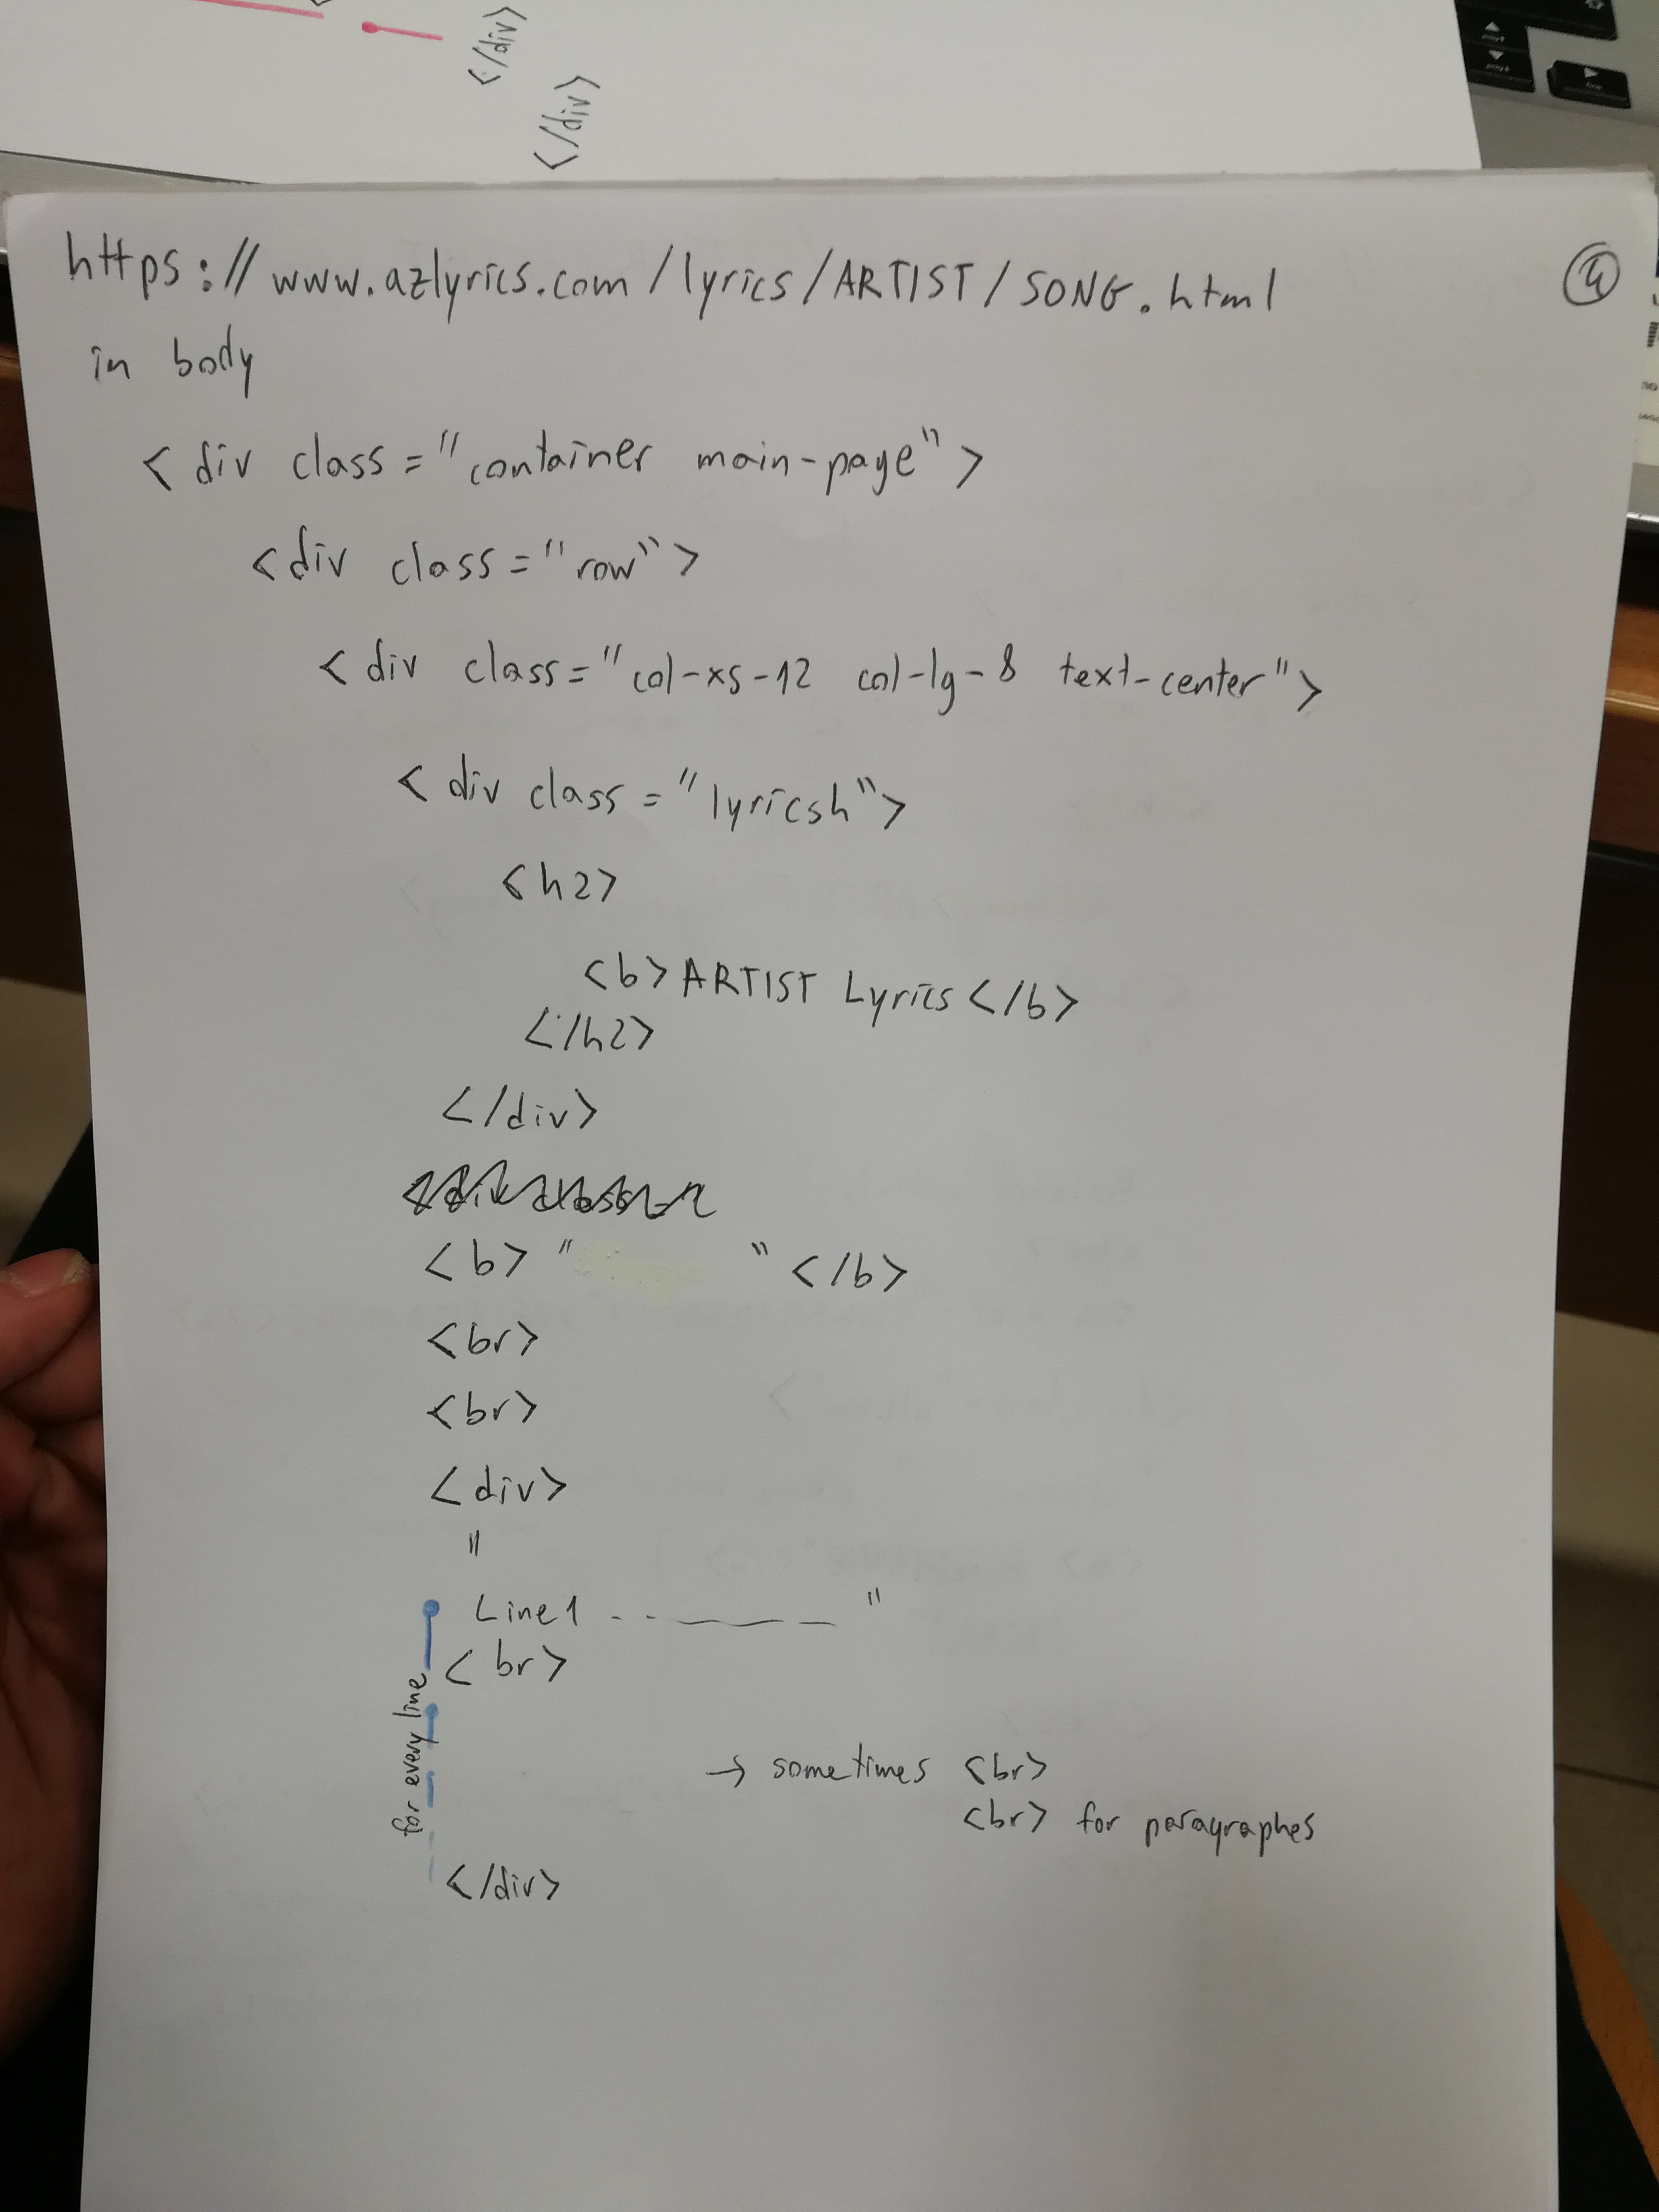 </div>
</div>
https://www.azlyrics.com/lyrics/ARTIST/SONG.html
4
in body
<div class="container main-page">
<div class="row">
<div class="col-xs-12 col-lg-8 text-center">
<div class="lyricsh">
<h2>
<b>ARTIST Lyrics</b>
</h2>
</div>
<b>" "</b>
<br>
<br>
<div>
"
Line1 -- ———— "
<br>
for every line
→ sometimes <br>
<br> for paragraphes
</div>